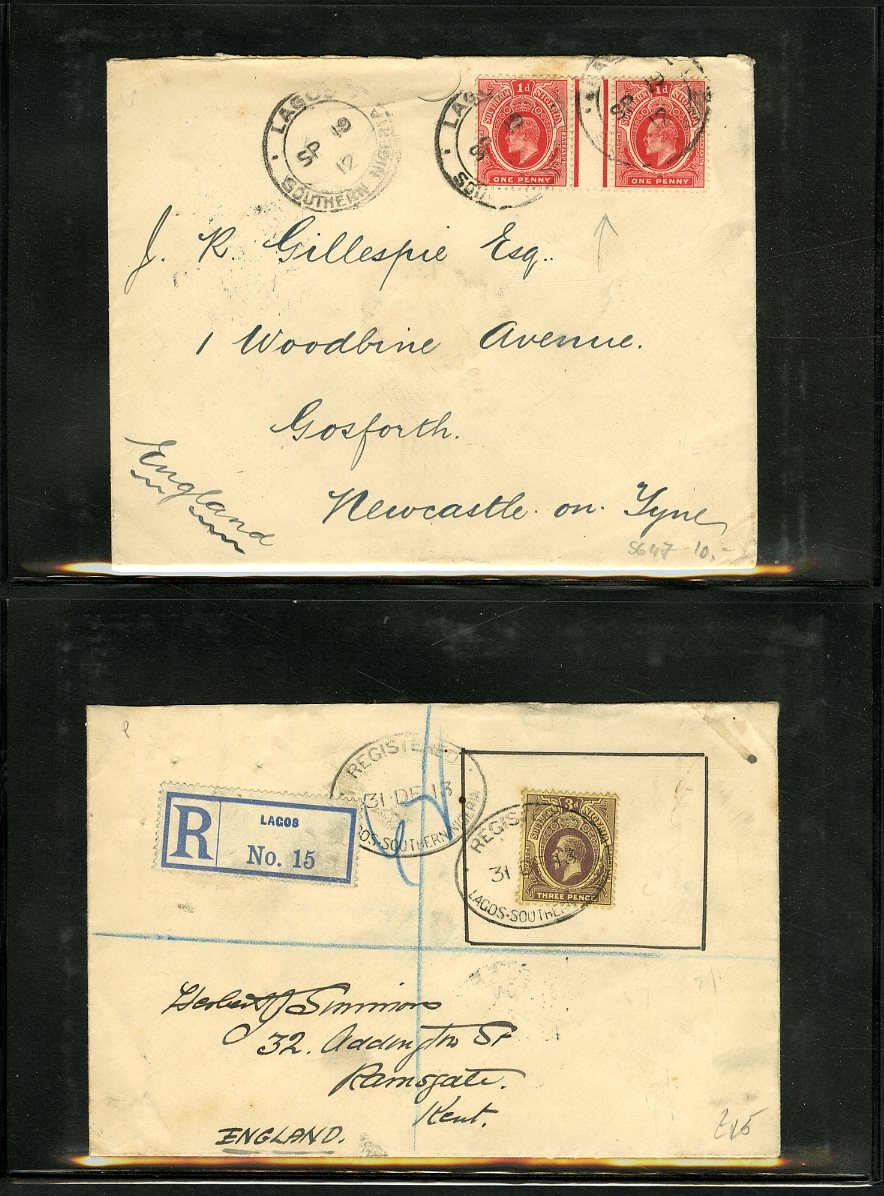 LAGOS
SP 19
12
SOUTHERN NIGERIA
LAGOS
SP
SOU
1d
SOUTHERN NIGERIA
ONE PENNY
19
SP
12
1d
SOUTHERN NIGERIA
ONE PENNY
J. R. Gillespie Esq.
1 Woodbine Avenue.
Gosforth.
Newcastle. on. Tyne
England
SG47 10,-
REGISTERED
31 DE 13
LAGOS-SOUTHERN NIGERIA
R
LAGOS
No. 15
REGISTERED
31 DE 13
LAGOS-SOUTHERN
3d
SOUTHERN NIGERIA
THREE PENCE
Herbert J Simmons
32. Addington St
Ramsgate.
Kent.
ENGLAND.